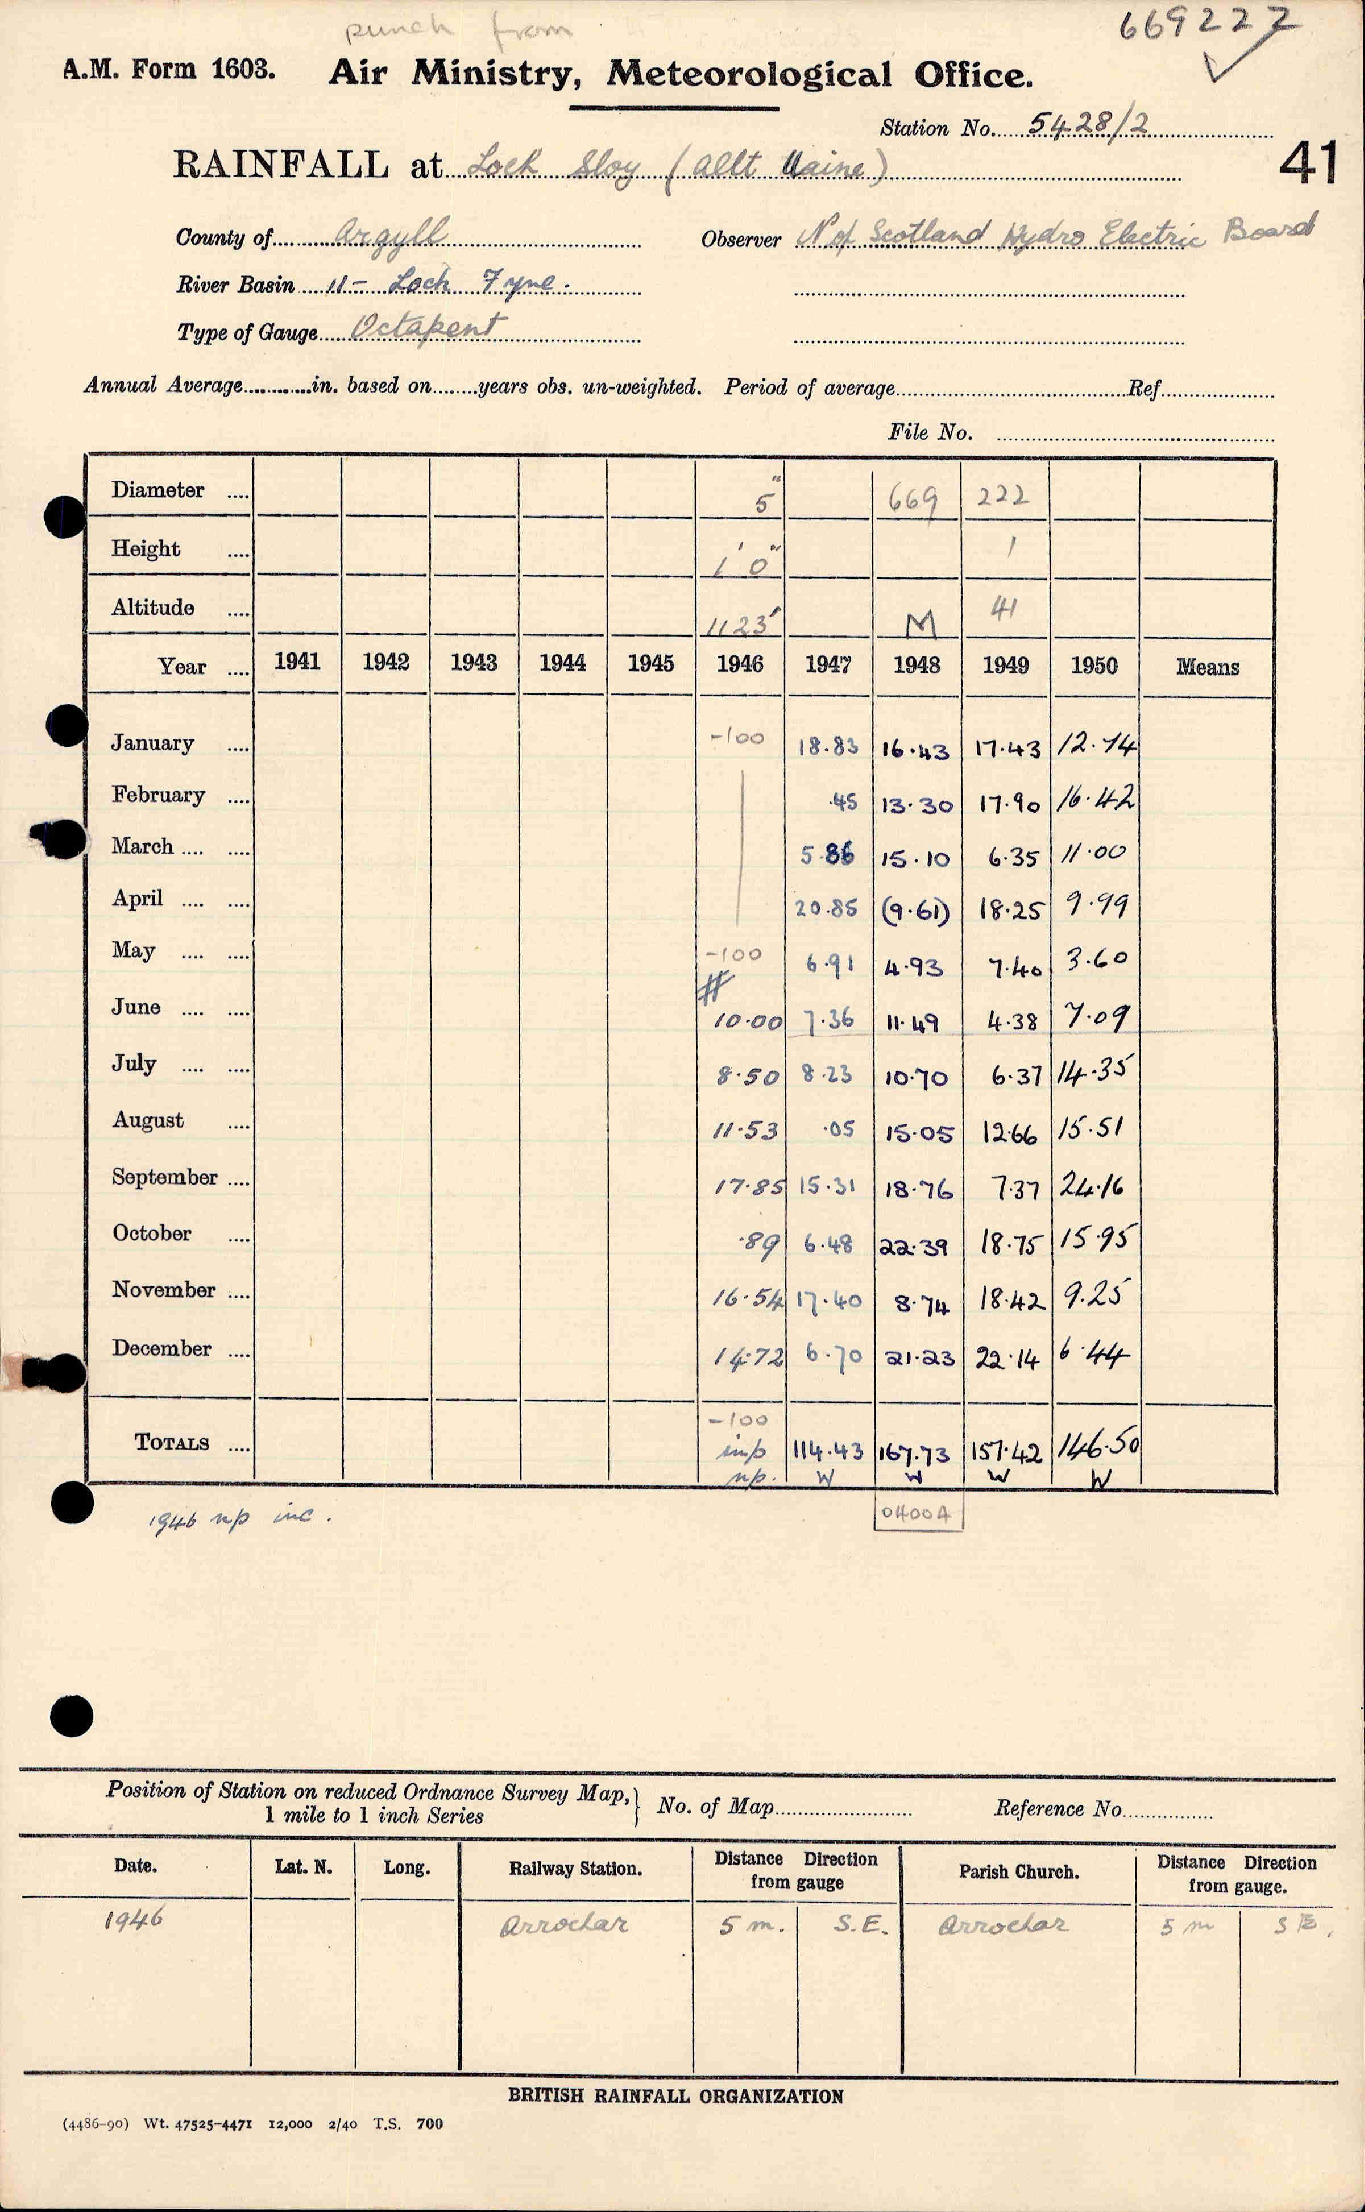 punch from 669227
A.M. Form 1603. Air Ministry, Meteorological Office.
Station No. 5428/2
41
RAINFALL at Loch Sloy (Allt Uaine)
County of Argyll Observer N of Scotland Hydro Electric Board
River Basin 11- Loch Fyne.
Type of Gauge Octapent
Annual Average in. based on years obs. un-weighted. Period of average Ref.
File No.
Diameter 5" 669 222
Height 1' 0" 1
Altitude 1123' M 41
Year 1941 1942 1943 1944 1945 1946 1947 1948 1949 1950 Means
January -100 18.83 16.43 17.43 12.74
February .45 13.30 17.90 16.42
March 5.86 15.10 6.35 11.00
April 20.85 (9.61) 18.25 9.99
May -100 6.91 4.93 7.40 3.60
#
June 10.00 7.36 11.49 4.38 7.09
July 8.50 8.23 10.70 6.37 14.35
August 11.53 .05 15.05 12.66 15.51
September 17.85 15.31 18.76 7.37 24.16
October .89 6.48 22.39 18.75 15.95
November 16.54 17.40 8.74 18.42 9.25
December 14.72 6.70 21.23 22.14 6.44
-100
TOTALS imp 114.43 167.73 157.42 146.50
np. W W W W
1946 np inc. 0400A
Position of Station on reduced Ordnance Survey Map, No. of Map Reference No.
1 mile to 1 inch Series
Date. Lat. N. Long. Railway Station. Distance Direction from gauge Parish Church. Distance Direction from gauge.
1946 Arrochar 5 m. S.E. Arrochar 5 m S E.
BRITISH RAINFALL ORGANIZATION
(4486-90) Wt. 47525-4471 12,000 2/40 T.S. 700